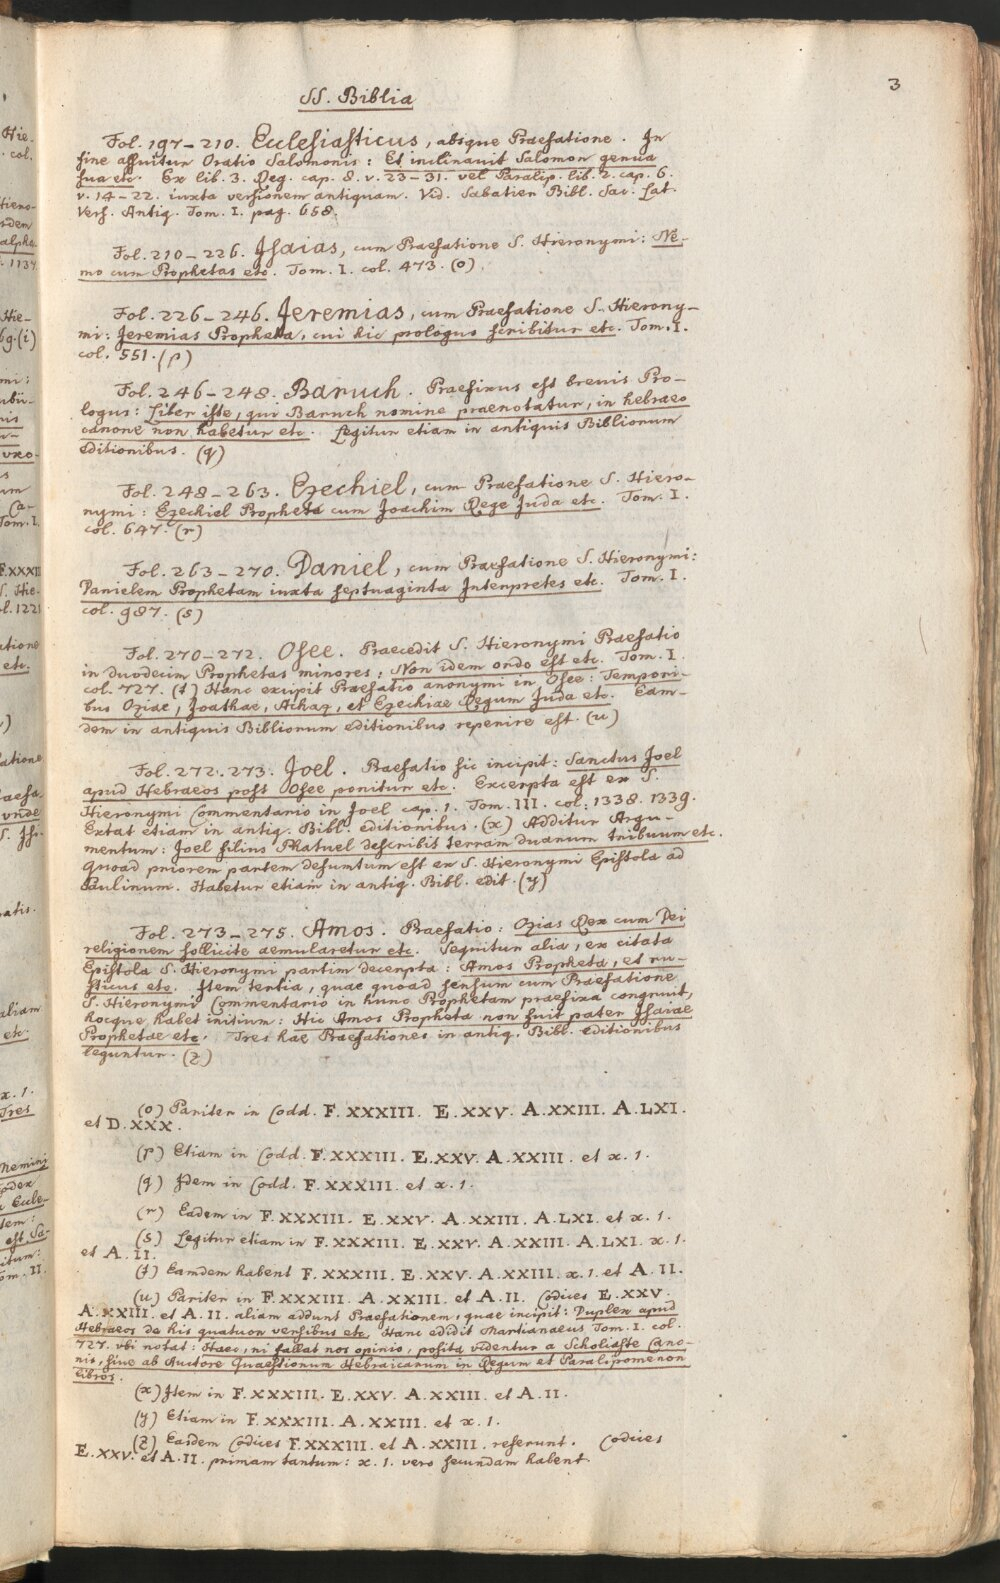 SS. Biblia
3
Fol. 197–210. Ecclesiasticus, absque Praefatione. In
fine assuitur Oratio Salomonis: Et inclinauit Salomon genua
sua etc. Ex lib. 3. Reg. cap. 8. v. 23–31. vel Paralip. lib. 2. cap. 6.
v. 14–22. iuxta versionem antiquam. Vid. Sabatier Bibl. Sac. Lat.
Vers. Antiq. Tom. I. pag. 658.
Fol. 210–226. Isaias, cum Praefatione S. Hieronymi: Ne-
mo cum Prophetas etc. Tom. I. col. 473. (o)
Fol. 226–246. Jeremias, cum Praefatione S. Hierony-
mi: Jeremias Propheta, cui hic prologus scribitur etc. Tom. I.
col. 551. (p)
Fol. 246–248. Baruch. Praefixus est breuis Pro-
logus: Liber iste, qui Baruch nomine praenotatur, in hebraeo
canone non habetur etc. Legitur etiam in antiquis Bibliorum
editionibus. (q)
Fol. 248–263. Ezechiel, cum Praefatione S. Hiero-
nymi: Ezechiel Propheta cum Joachim Rege Juda etc. Tom. I.
col. 647. (r)
Fol. 263–270. Daniel, cum Praefatione S. Hieronymi:
Danielem Prophetam iuxta septuaginta Interpretes etc. Tom. I.
col. 987. (s)
Fol. 270–272. Osee. Praecedit S. Hieronymi Praefatio
in duodecim Prophetas minores, Non idem ordo est etc. Tom. I.
col. 727. (t) Hanc excipit Praefatio anonymi in Osee: Tempori-
bus Oziae, Joathae, Achaz, et Ezechiae Regum Juda etc. Eam-
dem in antiquis Bibliorum editionibus reperire est. (u)
Fol. 272. 273. Joel. Praefatio sic incipit: Sanctus Joel
apud Hebraeos post Osee ponitur etc. Excerpta est ex S.
Hieronymi Commentario in Joel cap. 1. Tom. III. col. 1338. 1339.
Extat etiam in antiq. Bibl. editionibus. (x) Additur Argu-
mentum: Joel filius Phatuel describit terram duarum tribuum etc.
Quoad priorem partem desumtum est ex S. Hieronymi Epistola ad
Paulinum. Habetur etiam in antiq. Bibl. edit. (y)
Fol. 273–275. Amos. Praefatio: Ozias Rex cum Dei
religionem sollicite aemularetur etc. Sequitur alia, ex citata
Epistola S. Hieronymi partim decerpta: Amos Propheta, et ru-
sticus etc. Item tertia, quae quoad sensum cum Praefatione
S. Hieronymi Commentario in hunc Prophetam praefixa congruit,
hocque habet initium: Hic Amos Propheta non fuit pater Isaiae
Prophetae etc. Tres hae Praefationes in antiq. Bibl. editionibus
leguntur. (z)
(o) Pariter in Codd. F.XXXIII. E.XXV. A.XXIII. A.LXI.
et D.XXX.
(p) Etiam in Codd. F.XXXIII. E.XXV. A.XXIII. et x. 1.
(q) Idem in Codd. F.XXXIII. et x. 1.
(r) Eadem in F.XXXIII. E.XXV. A.XXIII. A.LXI. et x. 1.
(s) Legitur etiam in F.XXXIII. E.XXV. A.XXIII. A.LXI. x. 1.
et A. II.
(t) Eamdem habent F.XXXIII. E.XXV. A.XXIII. x. 1. et A. II.
(u) Pariter in F.XXXIII. A.XXIII. et A. II. Codices E.XXV.
A.XXIII. et A. II. aliam addunt Praefationem, quae incipit: Duplex apud
Hebraeos de his quatuor versibus etc. Hanc edidit Martianaeus Tom. I. col.
727. vbi notat: Haec, ni fallat nos opinio, posita videntur a Scholiaste Cano-
nis, siue ab Auctore Quaestionum Hebraicarum in Regum et Paralipomenon
libros.
(x) Item in F.XXXIII. E.XXV. A.XXIII. et A. II.
(y) Etiam in F.XXXIII. A.XXIII. et x. 1.
(z) Easdem Codices F.XXXIII. et A.XXIII. referunt. Codices
E.XXV. et A. II. primam tantum: x. 1. vero secundam habent